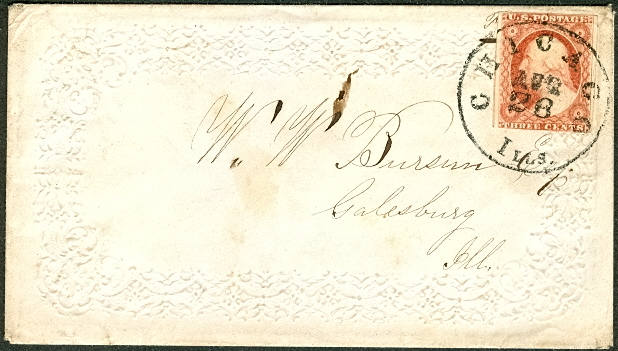 U.S. POSTAGE
THREE CENTS
CHICAGO
APR
26
ILLS.
W. W. Bursum Esq.
Galesburg
Ill.